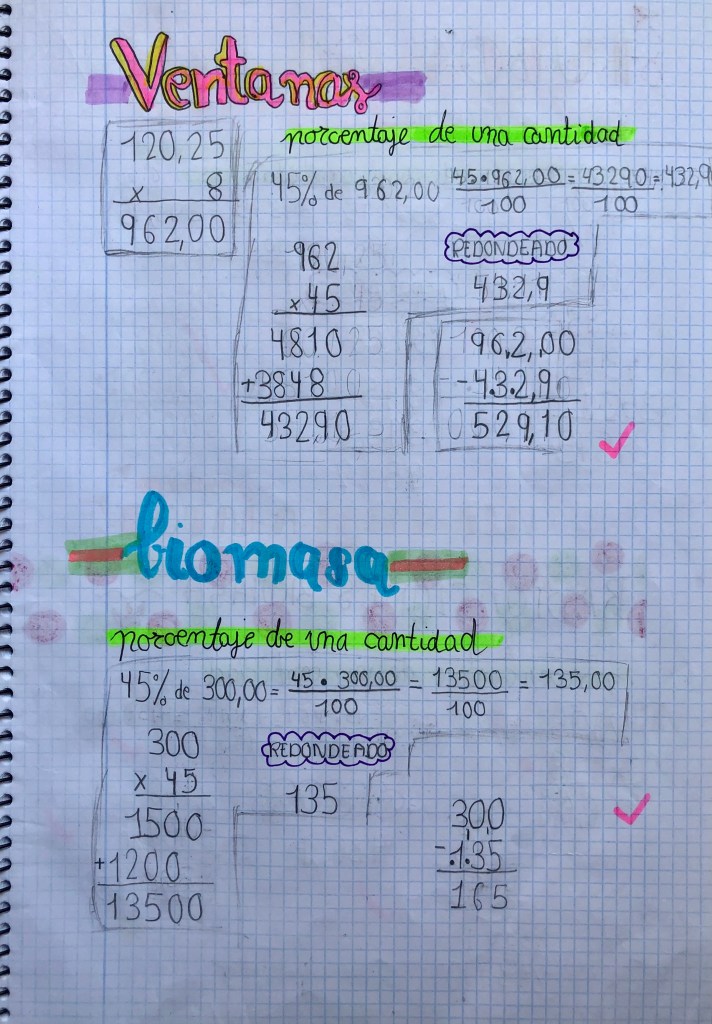 Ventanas
120,25
x 8
962,00
porcentaje de una cantidad
45% de 962,00 45•962,00/100 = 43290/100 = 432,9
962
x45
4810
+3848
43290
REDONDEADO
432,9
962,00
-432,90
529,10
biomasa
porcentaje de una cantidad
45% de 300,00 = 45•300,00/100 = 13500/100 = 135,00
300
x 45
1500
+1200
13500
REDONDEADO
135
300
-135
165